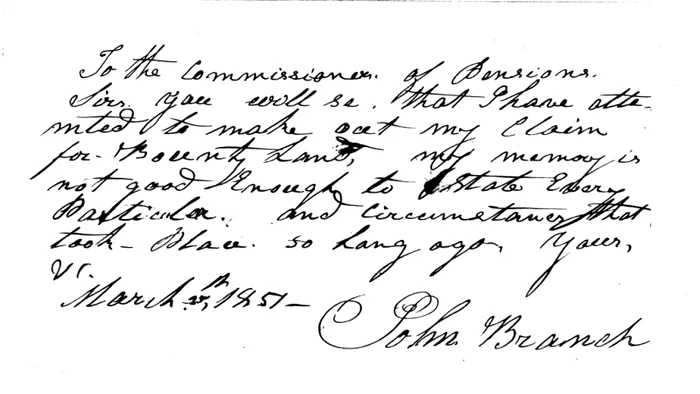 To the Commissioner. of Pensions.
Sirs. you will se. that I have atte-
mted to make out my Claim
for Bounty Land, my memory is
not good Enough to State Every
Particular. and Circumstances that
took Place. so Long ago, Yours,
&c.
March 1851
John Branch